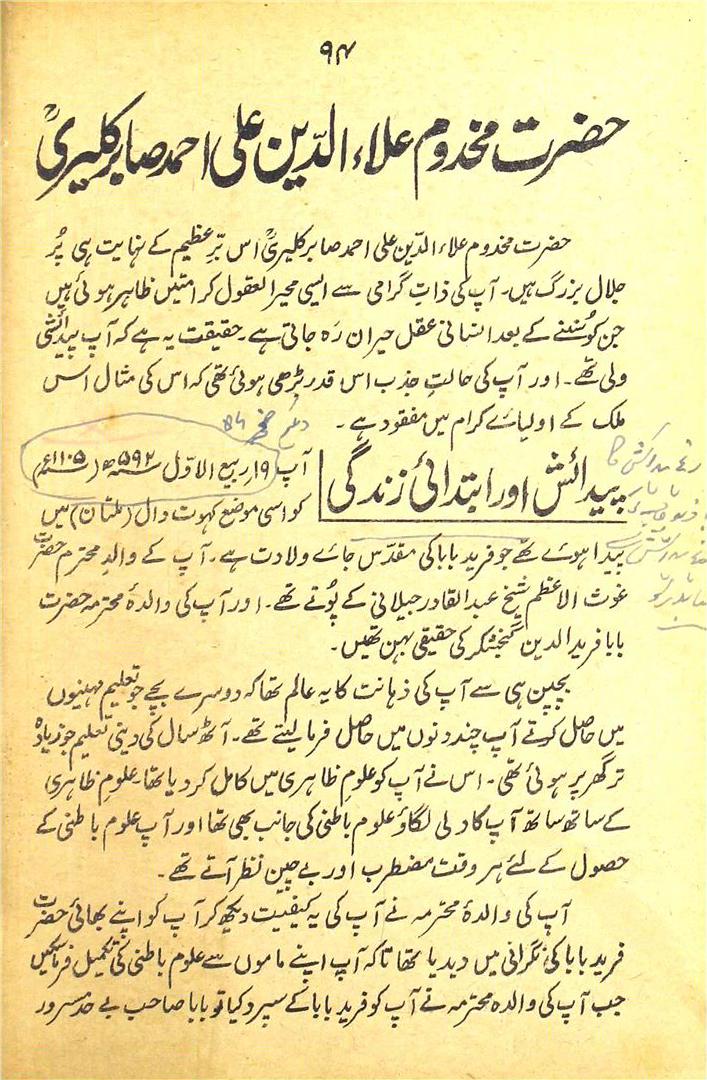 ۹۴
حضرت مخدوم علاء الدّین علی احمد صابر کلیریؒ
حضرت مخدوم علاء الدّین علی احمد صابر کلیریؒ اس برِّ عظیم کے نہایت ہی پُر
جلال بزرگ ہیں۔ آپ کی ذاتِ گرامی سے ایسی محیر العقول کرامتیں ظاہر ہوئی ہیں
جن کو سُننے کے بعد انسانی عقل حیران رہ جاتی ہے۔ حقیقت یہ ہے کہ آپ پیدائشی
ولی تھے۔ اور آپ کی حالتِ جذب اس قدر بڑھی ہوئی تھی کہ اس کی مثال اس
ملک کے اولیائے کرام میں مفقود ہے۔
پیدائش اور ابتدائی زندگی
آپ ۱۹ ربیع الاوّل ۵۹۲ھ (۱۱۰۵ء)
کو اسی موضع کہوت وال (ملتان) میں
پیدا ہوئے تھے جو فرید بابا کی مقدّس جائے ولادت ہے۔ آپ کے والدِ محترم حضرت
غوث الاعظم شیخ عبد القادر جیلانی کے پوتے تھے۔ اور آپ کی والدۂ محترمہ حضرت
بابا فرید الدین گنجشکر کی حقیقی بہن تھیں۔
بچپن ہی سے آپ کی ذہانت کا یہ عالم تھا کہ دوسرے بچے جو تعلیم مہینوں
میں حاصل کرتے آپ چند دنوں میں حاصل فرما لیتے تھے۔ آٹھ سال کی دینی تعلیم جو زیادہ
تر گھر پر ہوئی تھی۔ اس نے آپ کو علومِ ظاہری میں کامل کر دیا تھا۔ علومِ ظاہری
کے ساتھ ساتھ آپ کا دلی لگاؤ علومِ باطنی کی جانب بھی تھا اور آپ علوم باطنی کے
حصول کے لئے ہر وقت مضطرب اور بے چین نظر آتے تھے۔
آپ کی والدۂ محترمہ نے آپ کی یہ کیفیت دیکھ کر آپ کو اپنے بھائی حضرت
فرید بابا کی نگرانی میں دیدیا تھا تاکہ آپ اپنے ماموں سے علوم باطنی کی تکمیل فرما سکیں
جب آپ کی والدہ محترمہ نے آپ کو فرید بابا کے سپرد کیا تو بابا صاحب بے حد مسرور